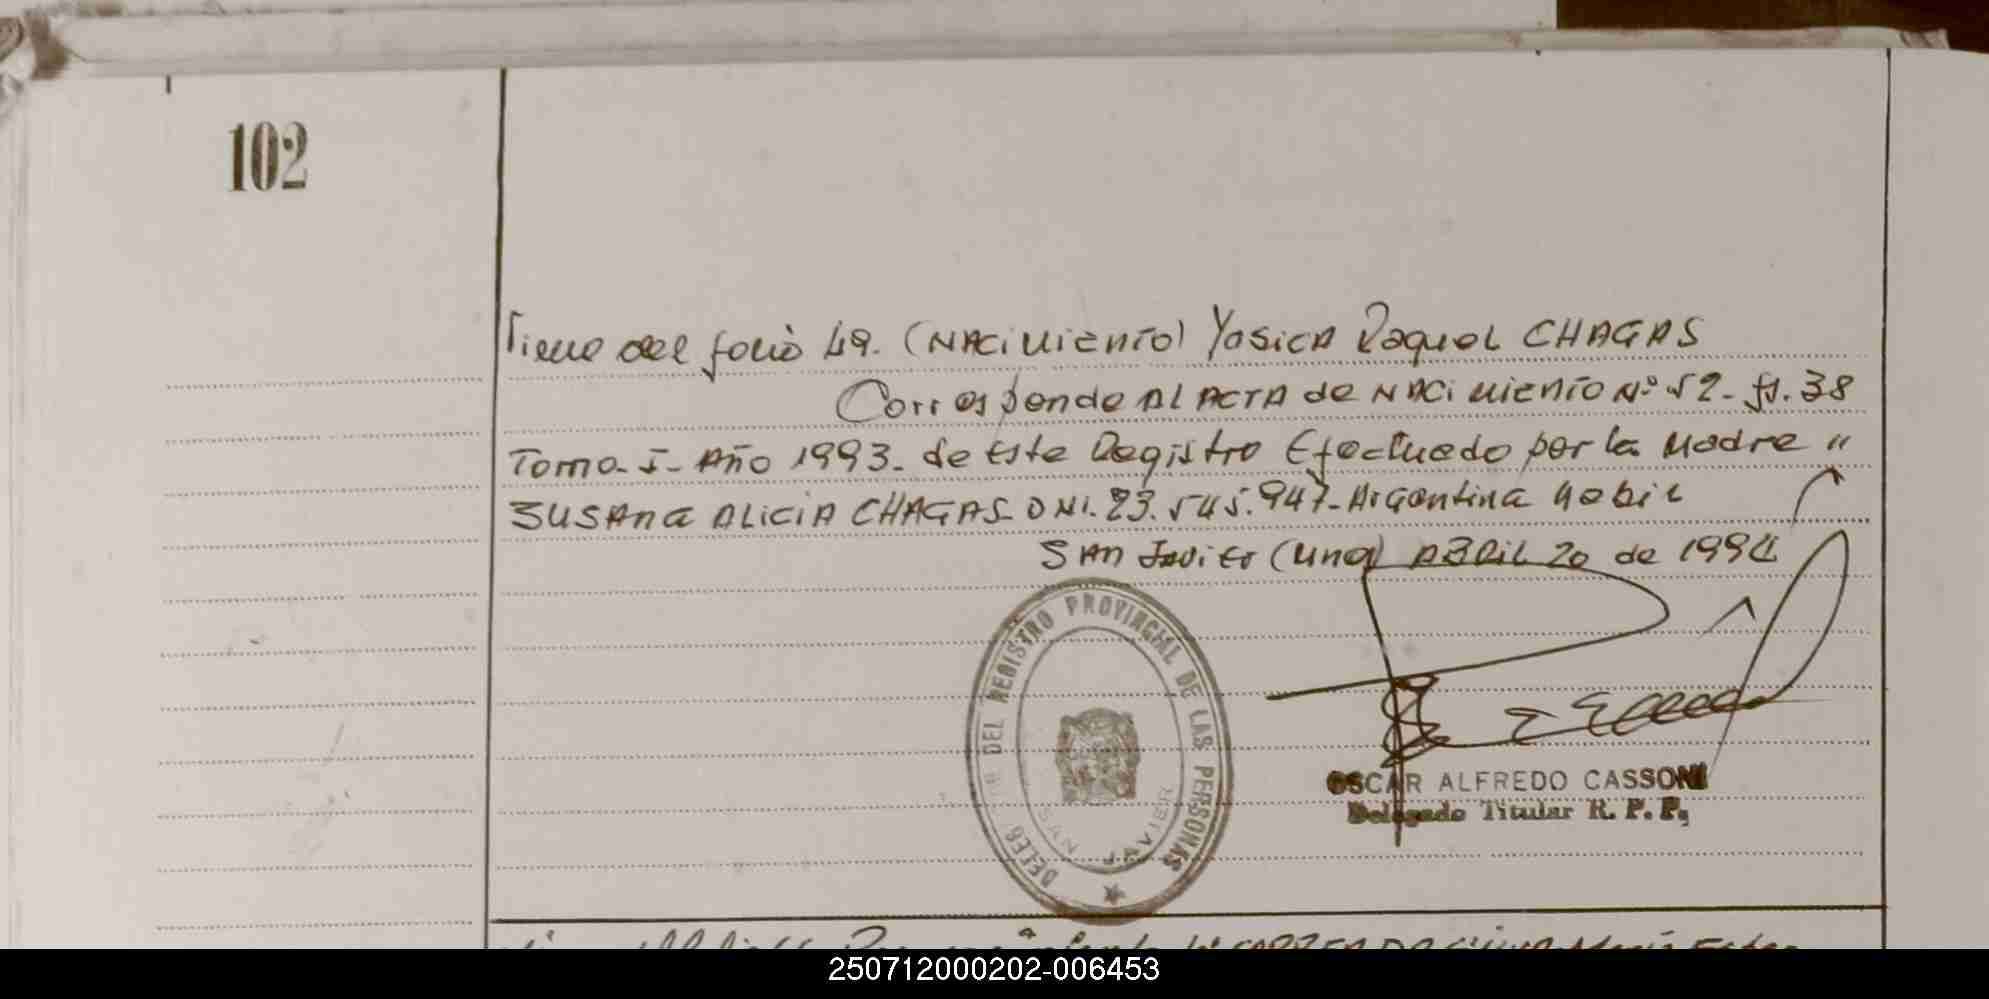 102
Viene del folio 49. (NACiMiento) Yasica Raquel CHAGAS
Corresponde AL ACTA de NACiMiento Nº 52- fs. 38
Tomo- I- Año 1993- de Este Registro Efectuado por la Madre "
SUSAna ALiCiA CHAGAS- DNI. 23.545.947- Argentina
SAn Javier ABRiL 20 de 1994
DELEG DEL REGISTRO PROVINCIAL DE LAS PERSONAS
SAN JAVIER
OSCAR ALFREDO CASSONI
Delegado Titular R. P. P.
250712000202-006453